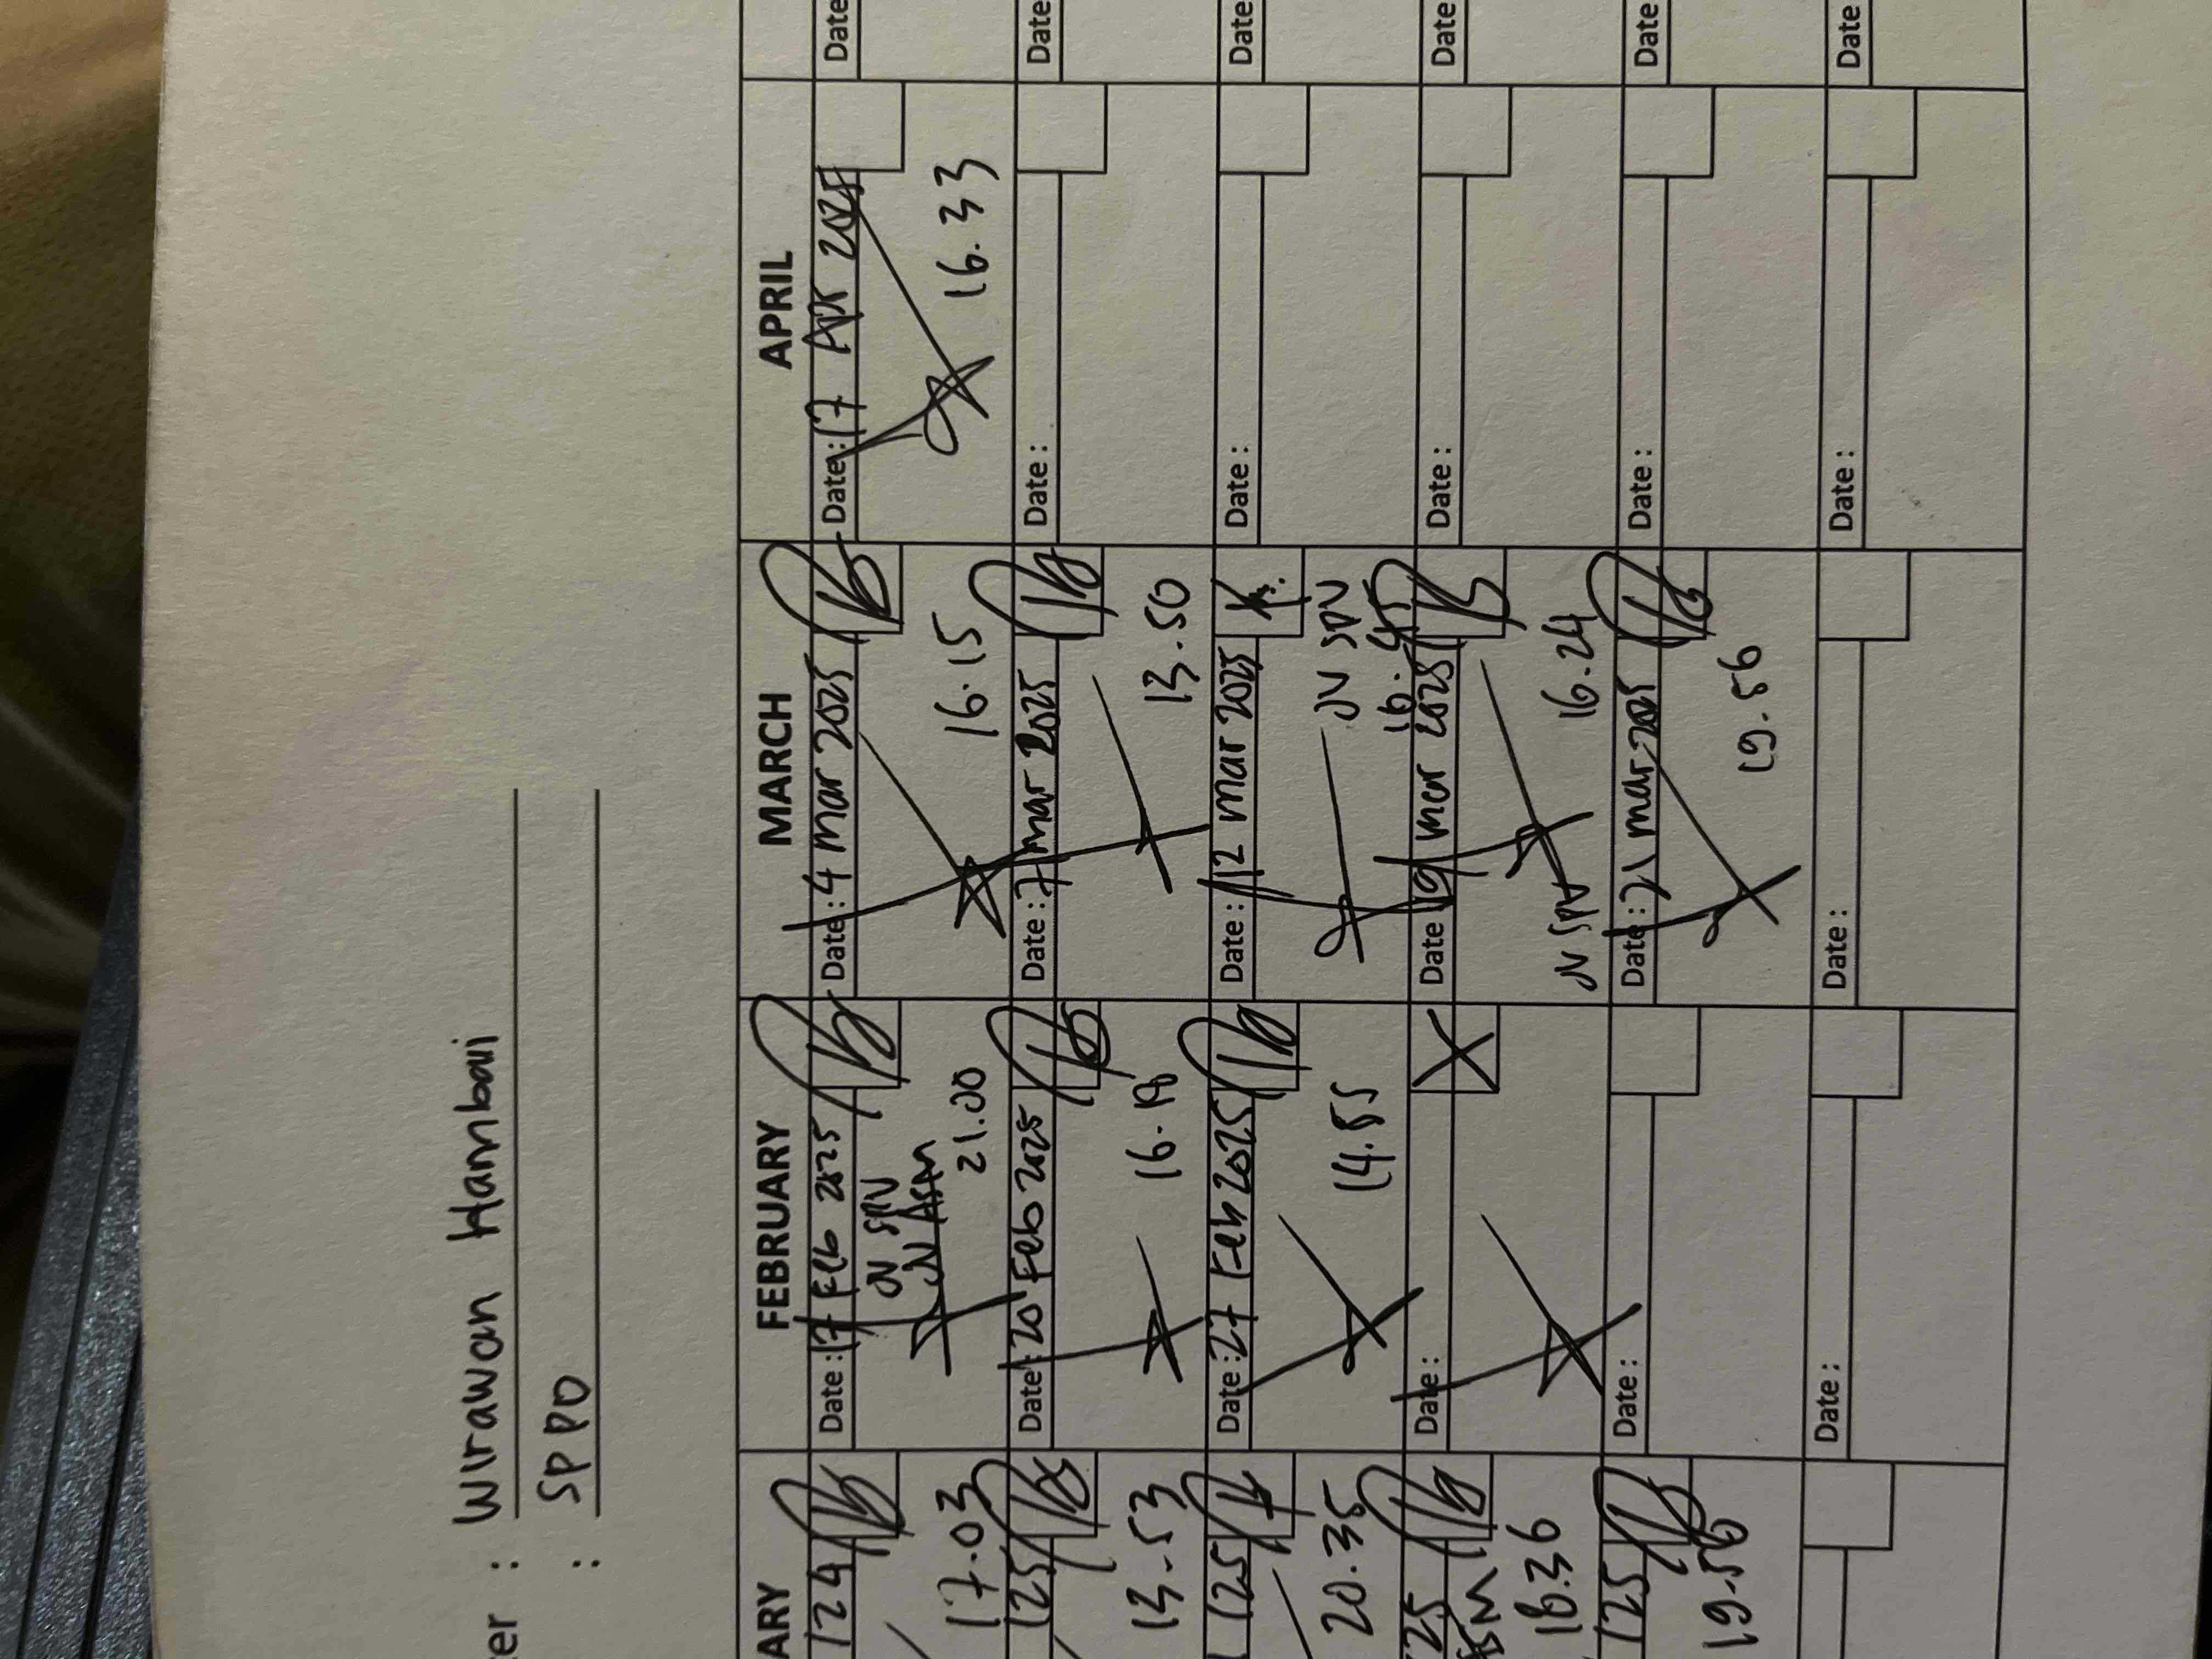 er : Wirawan Hambali
: SPPD
ARY
124
17.03
125
13.53
125
20.35
25
18.36
125
19.56
FEBRUARY
Date : 17 Feb 2025
JV SPV
JV Asm
21.00
Date : 20 Feb 2025
16.18
Date : 27 Feb 2025
14.55
Date :
Date :
Date :
MARCH
Date : 4 mar 2025
16.15
Date : 7 mar 2025
13.50
Date : 12 mar 2025
JV SPV
16.45
Date 19 mar 2025
16.24
JV SPV
Date : 21 mar 2025
19.56
Date :
APRIL
Date : 17 Apr 2025
16.33
Date :
Date :
Date :
Date :
Date :
Date
Date
Date
Date
Date
Date